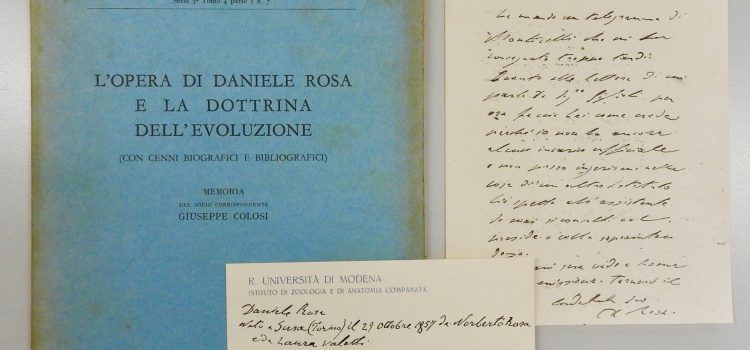 Serie 3ª Tomo 4 parte 1 n. 7.
L'OPERA DI DANIELE ROSA
E LA DOTTRINA
DELL'EVOLUZIONE
(CON CENNI BIOGRAFICI E BIBLIOGRAFICI)
MEMORIA
DEL SOCIO CORRISPONDENTE
GIUSEPPE COLOSI
Le mando un telegramma di
Monticelli che mi han
consegnato troppo tardi.
Quanto alle lettere di cui
parla
ora faccia Lei come crede
perché io non ho ancora
alcun incarico ufficiale
e non posso ingerirmi nelle
cose di un altro istituto
spetta all'assistente
se mai si consulti col
preside o colla
R. UNIVERSITÀ DI MODENA
ISTITUTO DI ZOOLOGIA E DI ANATOMIA COMPARATA
Daniele Rosa
Nato a Susa (Torino) il 29 Ottobre 1857 da Norberto Rosa
e da Laura Valetti